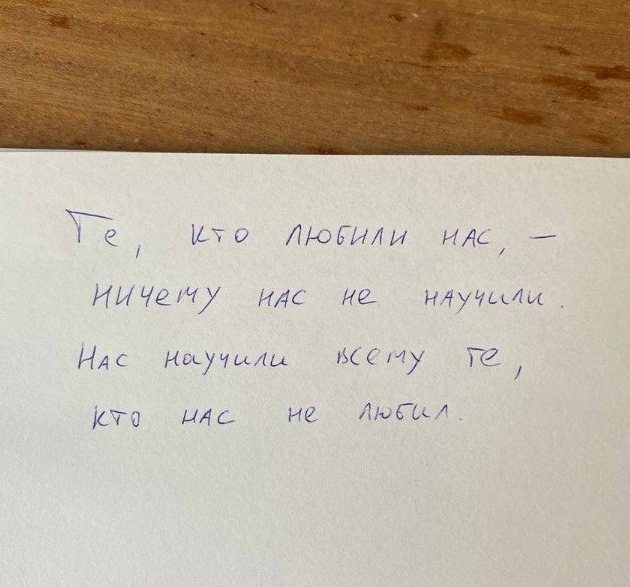 Те, кто любили нас, –
ничему нас не научили.
Нас научили всему те,
кто нас не любил.